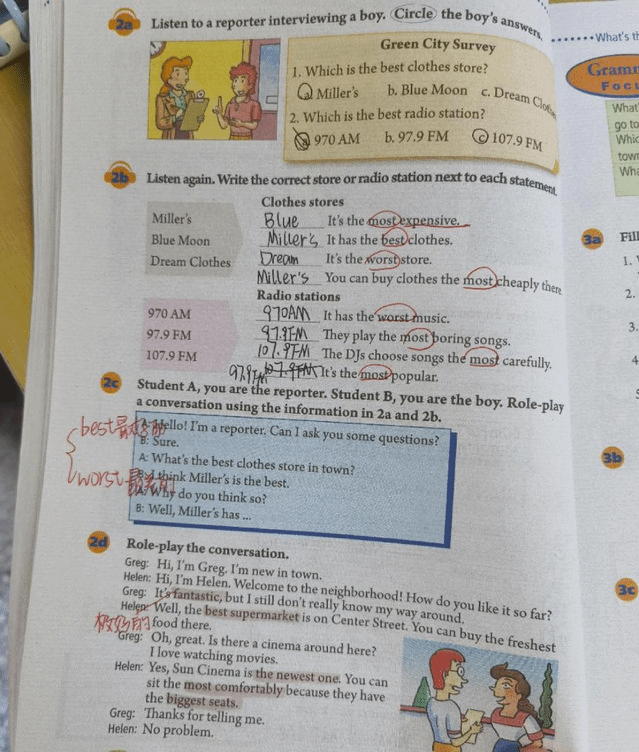 2a Listen to a reporter interviewing a boy. Circle the boy's answers.
Green City Survey
1. Which is the best clothes store?
a Miller's b. Blue Moon c. Dream Clothes
2. Which is the best radio station?
a 970 AM b. 97.9 FM c 107.9 FM
2b Listen again. Write the correct store or radio station next to each statement.
Clothes stores
Miller's
Blue Moon
Dream Clothes
Blue It's the most expensive.
Miller's It has the best clothes.
Dream It's the worst store.
Miller's You can buy clothes the most cheaply there
Radio stations
970 AM
97.9 FM
107.9 FM
970AM It has the worst music.
97.9FM They play the most boring songs.
107.9FM The DJs choose songs the most carefully.
97.9FM It's the most popular.
2c Student A, you are the reporter. Student B, you are the boy. Role-play
a conversation using the information in 2a and 2b.
best
worst
Hello! I'm a reporter. Can I ask you some questions?
B: Sure.
A: What's the best clothes store in town?
I think Miller's is the best.
A: Why do you think so?
B: Well, Miller's has ...
2d Role-play the conversation.
Greg: Hi, I'm Greg. I'm new in town.
Helen: Hi, I'm Helen. Welcome to the neighborhood! How do you like it so far?
Greg: It's fantastic, but I still don't really know my way around.
Helen: Well, the best supermarket is on Center Street. You can buy the freshest
极好的 food there.
Greg: Oh, great. Is there a cinema around here?
I love watching movies.
Helen: Yes, Sun Cinema is the newest one. You can
sit the most comfortably because they have
the biggest seats.
Greg: Thanks for telling me.
Helen: No problem.
What's th
Gramm
Focu
What'
go to
Whic
town
Wha
3a Fill
1.
2.
3.
4
5
3b
3c